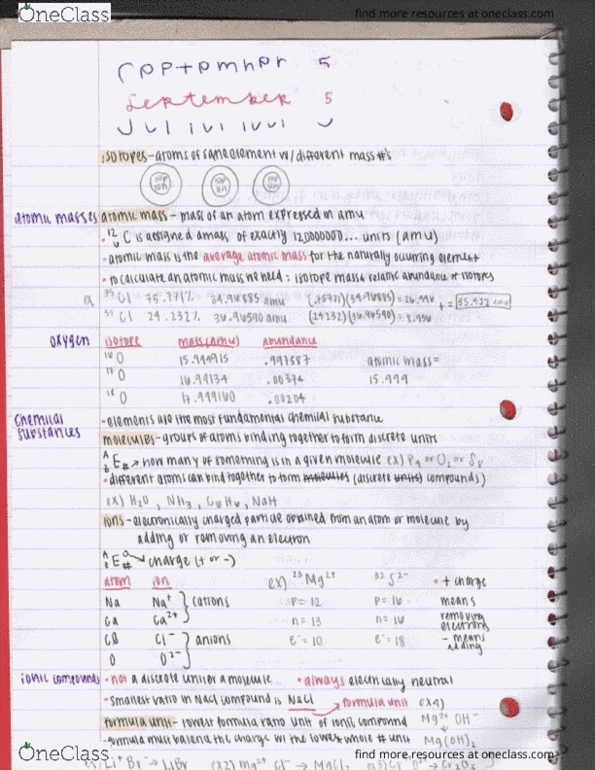 OneClass
find more resources at oneclass.com
September 5
isotopes - atoms of same element w/ different mass #'s
atomic masses
atomic mass - mass of an atom expressed in amu
· 12 C is assigned a mass of exactly 12.0000000... units (amu)
· atomic mass is the average atomic mass for the naturally occuring element
· to calculate an atomic mass we need: isotope mass + relative abundance of isotopes
35 Cl 34.96885 amu
37 Cl 24.232% 36.96590 amu
oxygen
isotope mass (amu) abundance
16 O 15.994915 .997587 atomic mass=
17 O 16.99134 .00374 15.999
18 O 17.999160 .00204
chemical substances
· elements are the most fundamental chemical substance
molecules - groups of atoms binding together to form discrete units
A Z E # → how many of something is in a given molecule ex) P4 or O2 or S8
· different atoms can bind together to form molecules (discrete units) compounds)
ex) H2O, NH3, C6H6, NaH
ions - electronically charged particle obtained from an atom or molecule by
adding or removing an electron
A Z E # charge (+ or -)
atom ion ex) 25 Mg2+ 32 S2- · + charge
Na Na+ cations p= 12 p= 16 means
Ca Ca2+ n= 13 n= 16 removing electrons
Cl Cl- anions e-= 10 e-= 18 - means adding
O O2-
ionic compounds
· not a discrete unit or a molecule... · always electrically neutral
· smallest ratio in NaCl compound is NaCl → formula unit ex4)
formula unit - lowest formula ratio unit of ionic compound Mg2+ OH-
· formula must balance the charge w/ the lowest whole # unit Mg(OH)2
ex) Li+ Br- → LiBr ex2) Mg2+ Cl- → MgCl2 ex3) Cr O2- → Cr2O3
OneClass
find more resources at oneclass.com